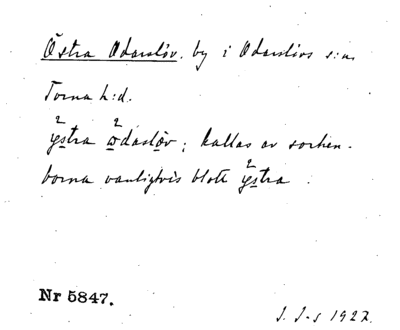 Östra Odarslöv. by i Odarslövs s:n
Torna h:d.
ẙstra ω̊daslöv; kallas av socken-
borna vanligtvis blott ystra.
Nr 5847.
J. J-s 1927.